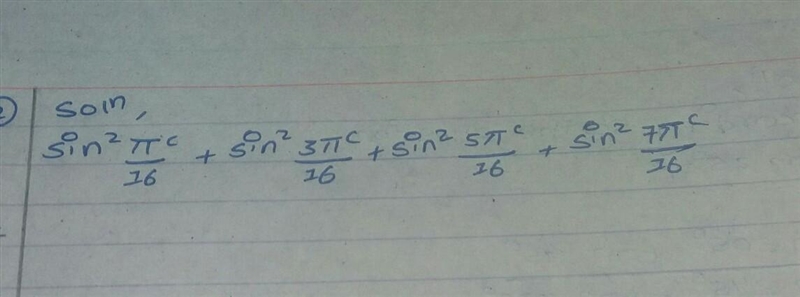 2) soln,
sin² πᶜ/16 + sin² 3πᶜ/16 + sin² 5πᶜ/16 + sin² 7πᶜ/16